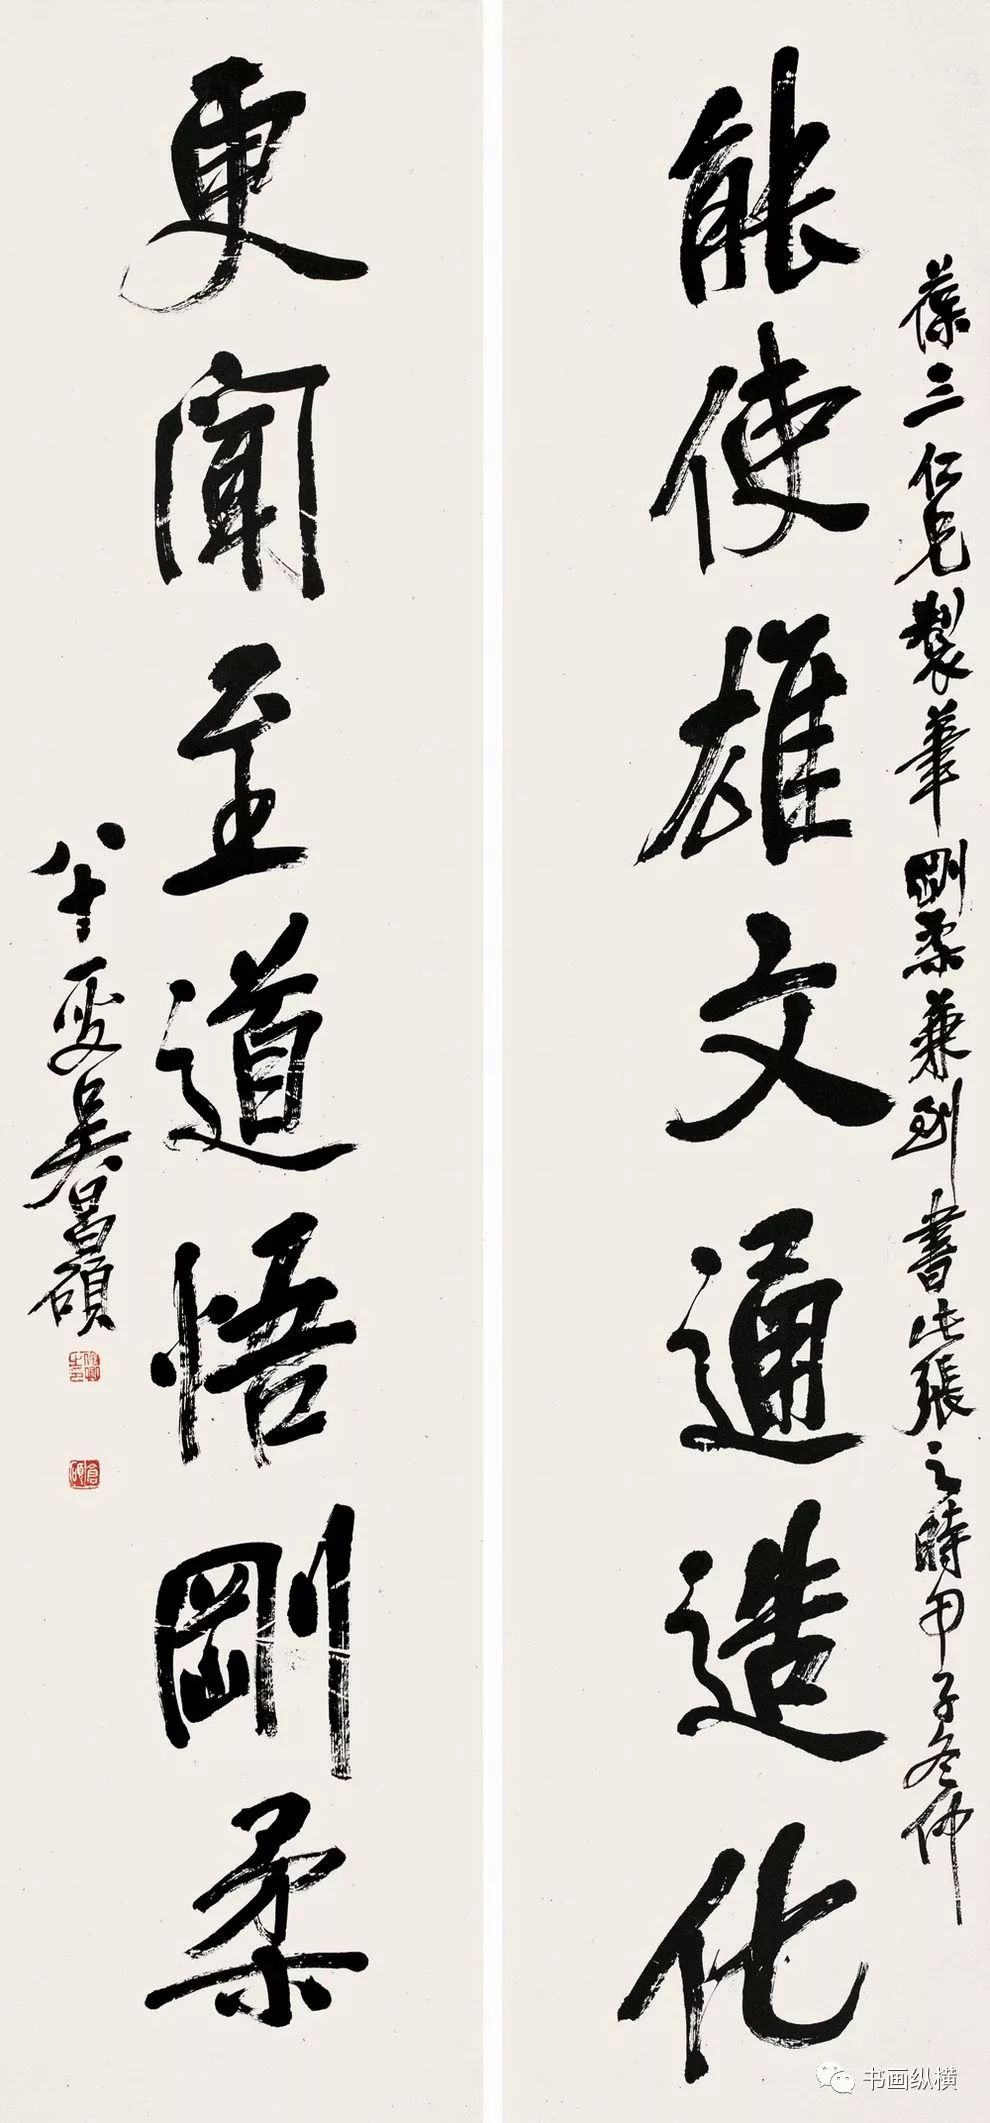 葆三仁兄製筆剛柔兼到書此張之時甲子冬仲
能使雄文通造化
更聞至道悟剛柔
八十一叟吳昌碩
俊卿之印
倉碩
书画纵横